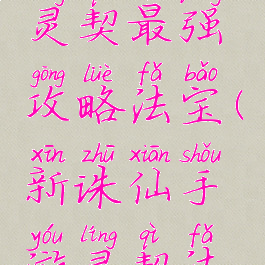 灵契最强
gōng lüè fǎ bǎo
攻略法宝(
xīn zhū xiān shǒu
新诛仙手
yóu líng qì fǎ
游灵契法